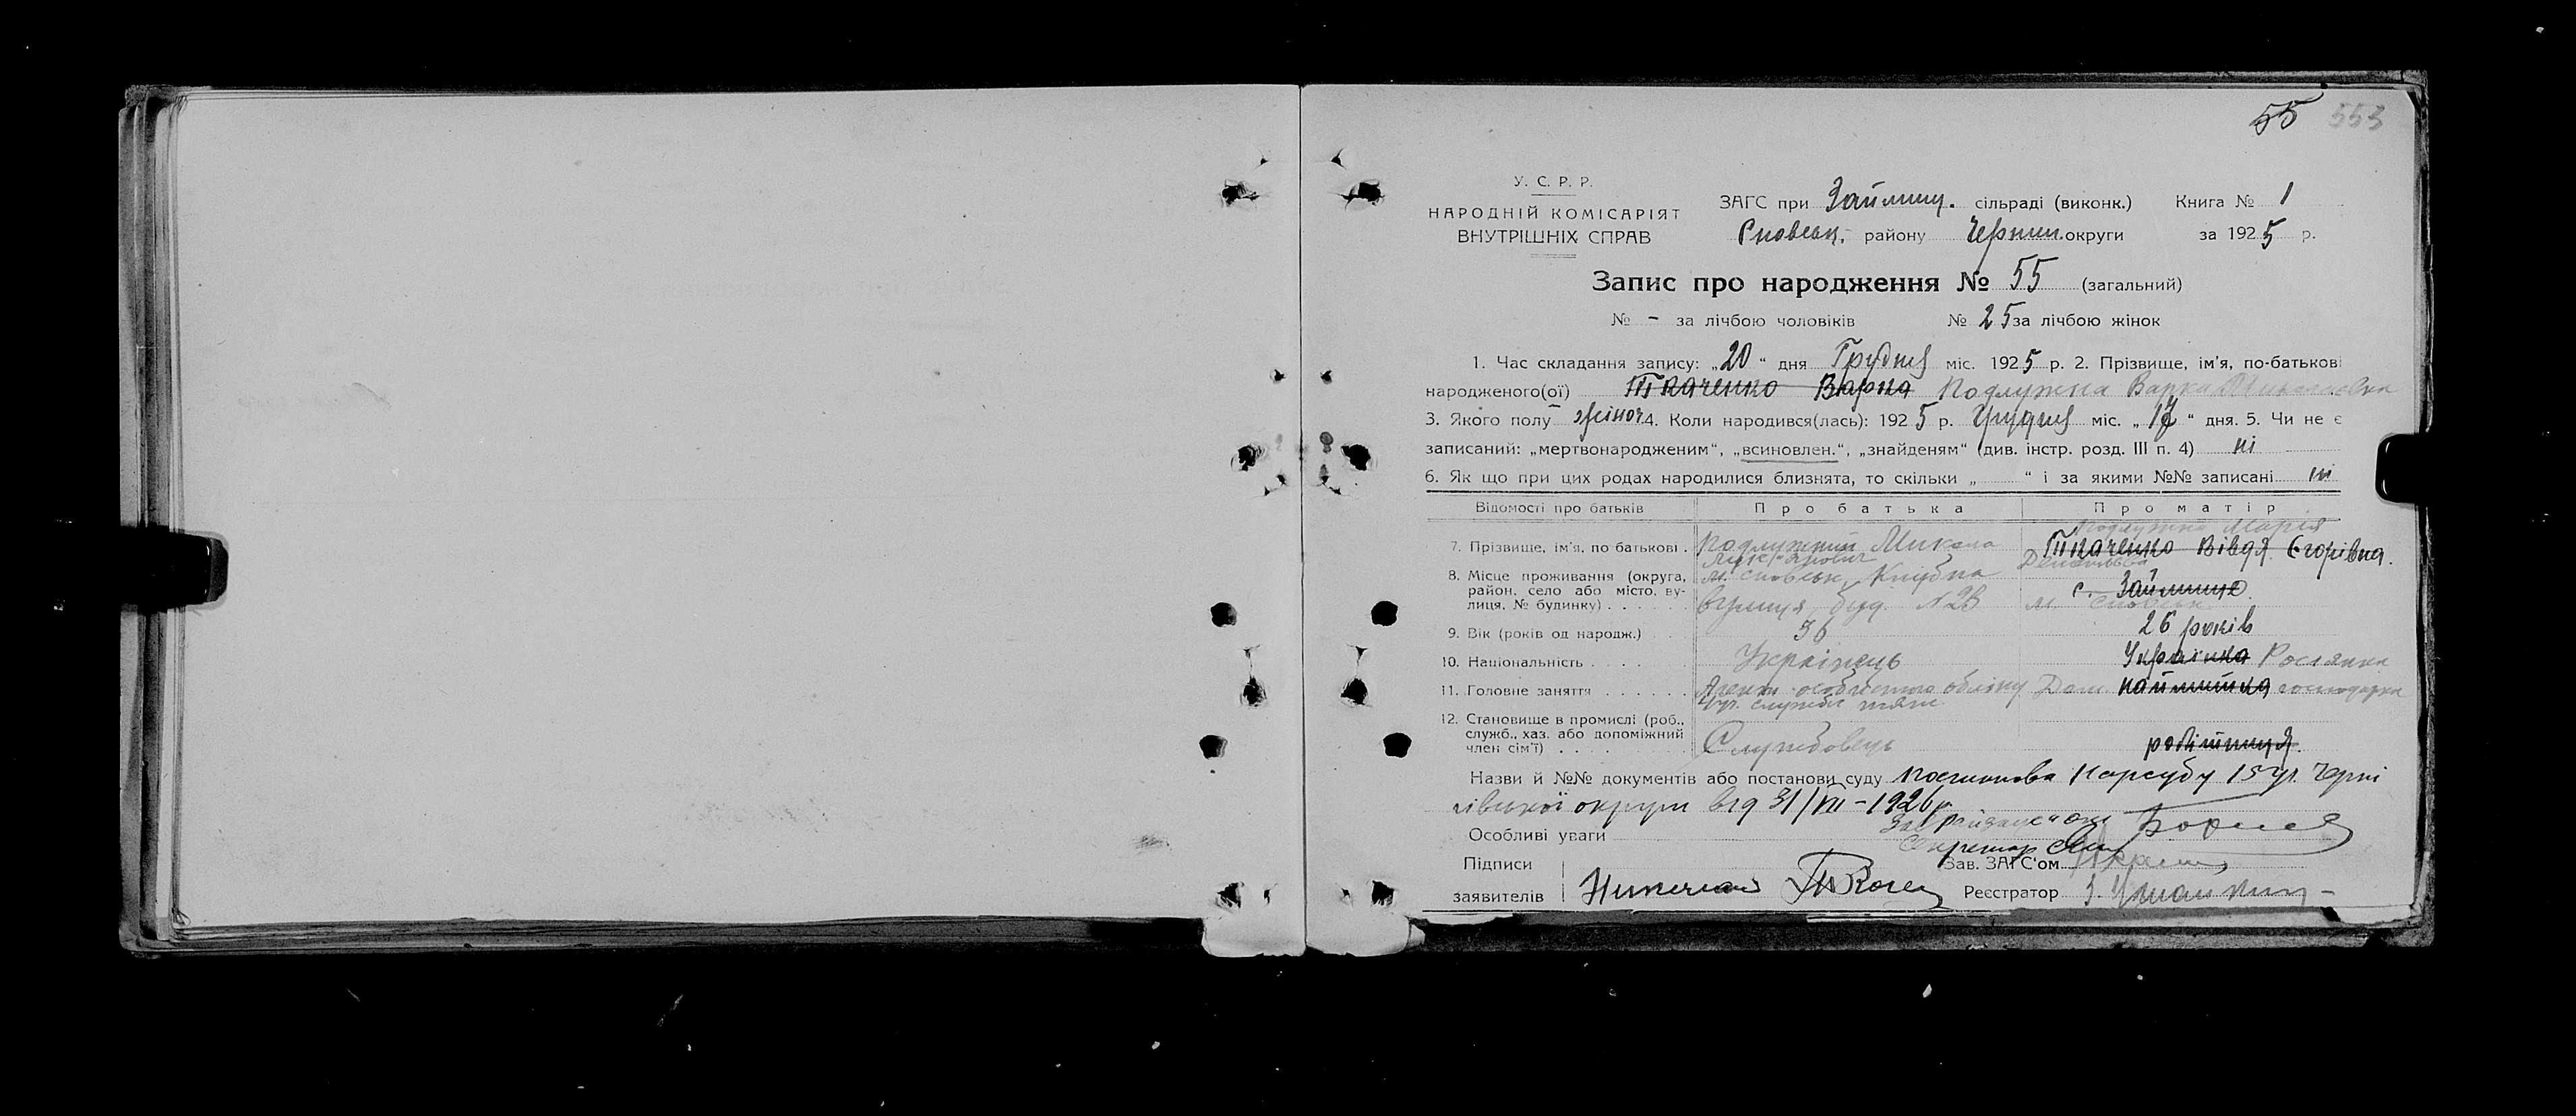 55 553
У. С. Р. Р.
НАРОДНІЙ КОМІСАРІЯТ
ВНУТРІШНІХ СПРАВ
ЗАГС при Займищ. сільраді (виконк.) Книга № 1
Сновськ. району Черниг. округи за 1925 р.
Запис про народження № 55 (загальний)
№ - за лічбою чоловіків № 25 за лічбою жінок
1. Час складання запису: „20“ дня Грудня міс. 1925 р. 2. Прізвище, ім'я, по-батькові
народженого(ої) Ткаченко Варка Подлужна Варка Миколаєвна
3. Якого полу жіноч. 4. Коли народився(лась): 1925 р. Грудня міс. „17“ дня. 5. Чи не є
записаний: „мертвонародженим“, „всиновлен.“, „знайденям“ (див. інстр. розд. III п. 4) ні
6. Як що при цих родах народилися близнята, то скільки „ “ і за якими №№ записані ні
Відомості про батьків Про батька Про матір
Подлужна Марія
7. Прізвище, ім'я, по батькові . Подлужний Микола Ткаченко Вівдя Єгорівна.
8. Місце проживання (округа, район, село або місто, вулиця, № будинку) м. Сновськ, Клубна
вулиця, буд. №28 с. Займище
м. Сновськ
9. Вік (років од народж.) 36 26 років
10. Національність Українець Українка Росіянка
11. Головне заняття Агент особистого обліку Дом наймичка господарка
служби тяги
12. Становище в промислі (роб., служб., хаз. або допоміжний член сім'ї) Службовець робітниця.
Назви й №№ документів або постанови суду постанова Нарсуду 15 уч. Черні
гівської округи від 31/VII-1926 р.
Особливі уваги
Секретар
Підписи Зав. ЗАГС'ом
заявителів Реєстратор